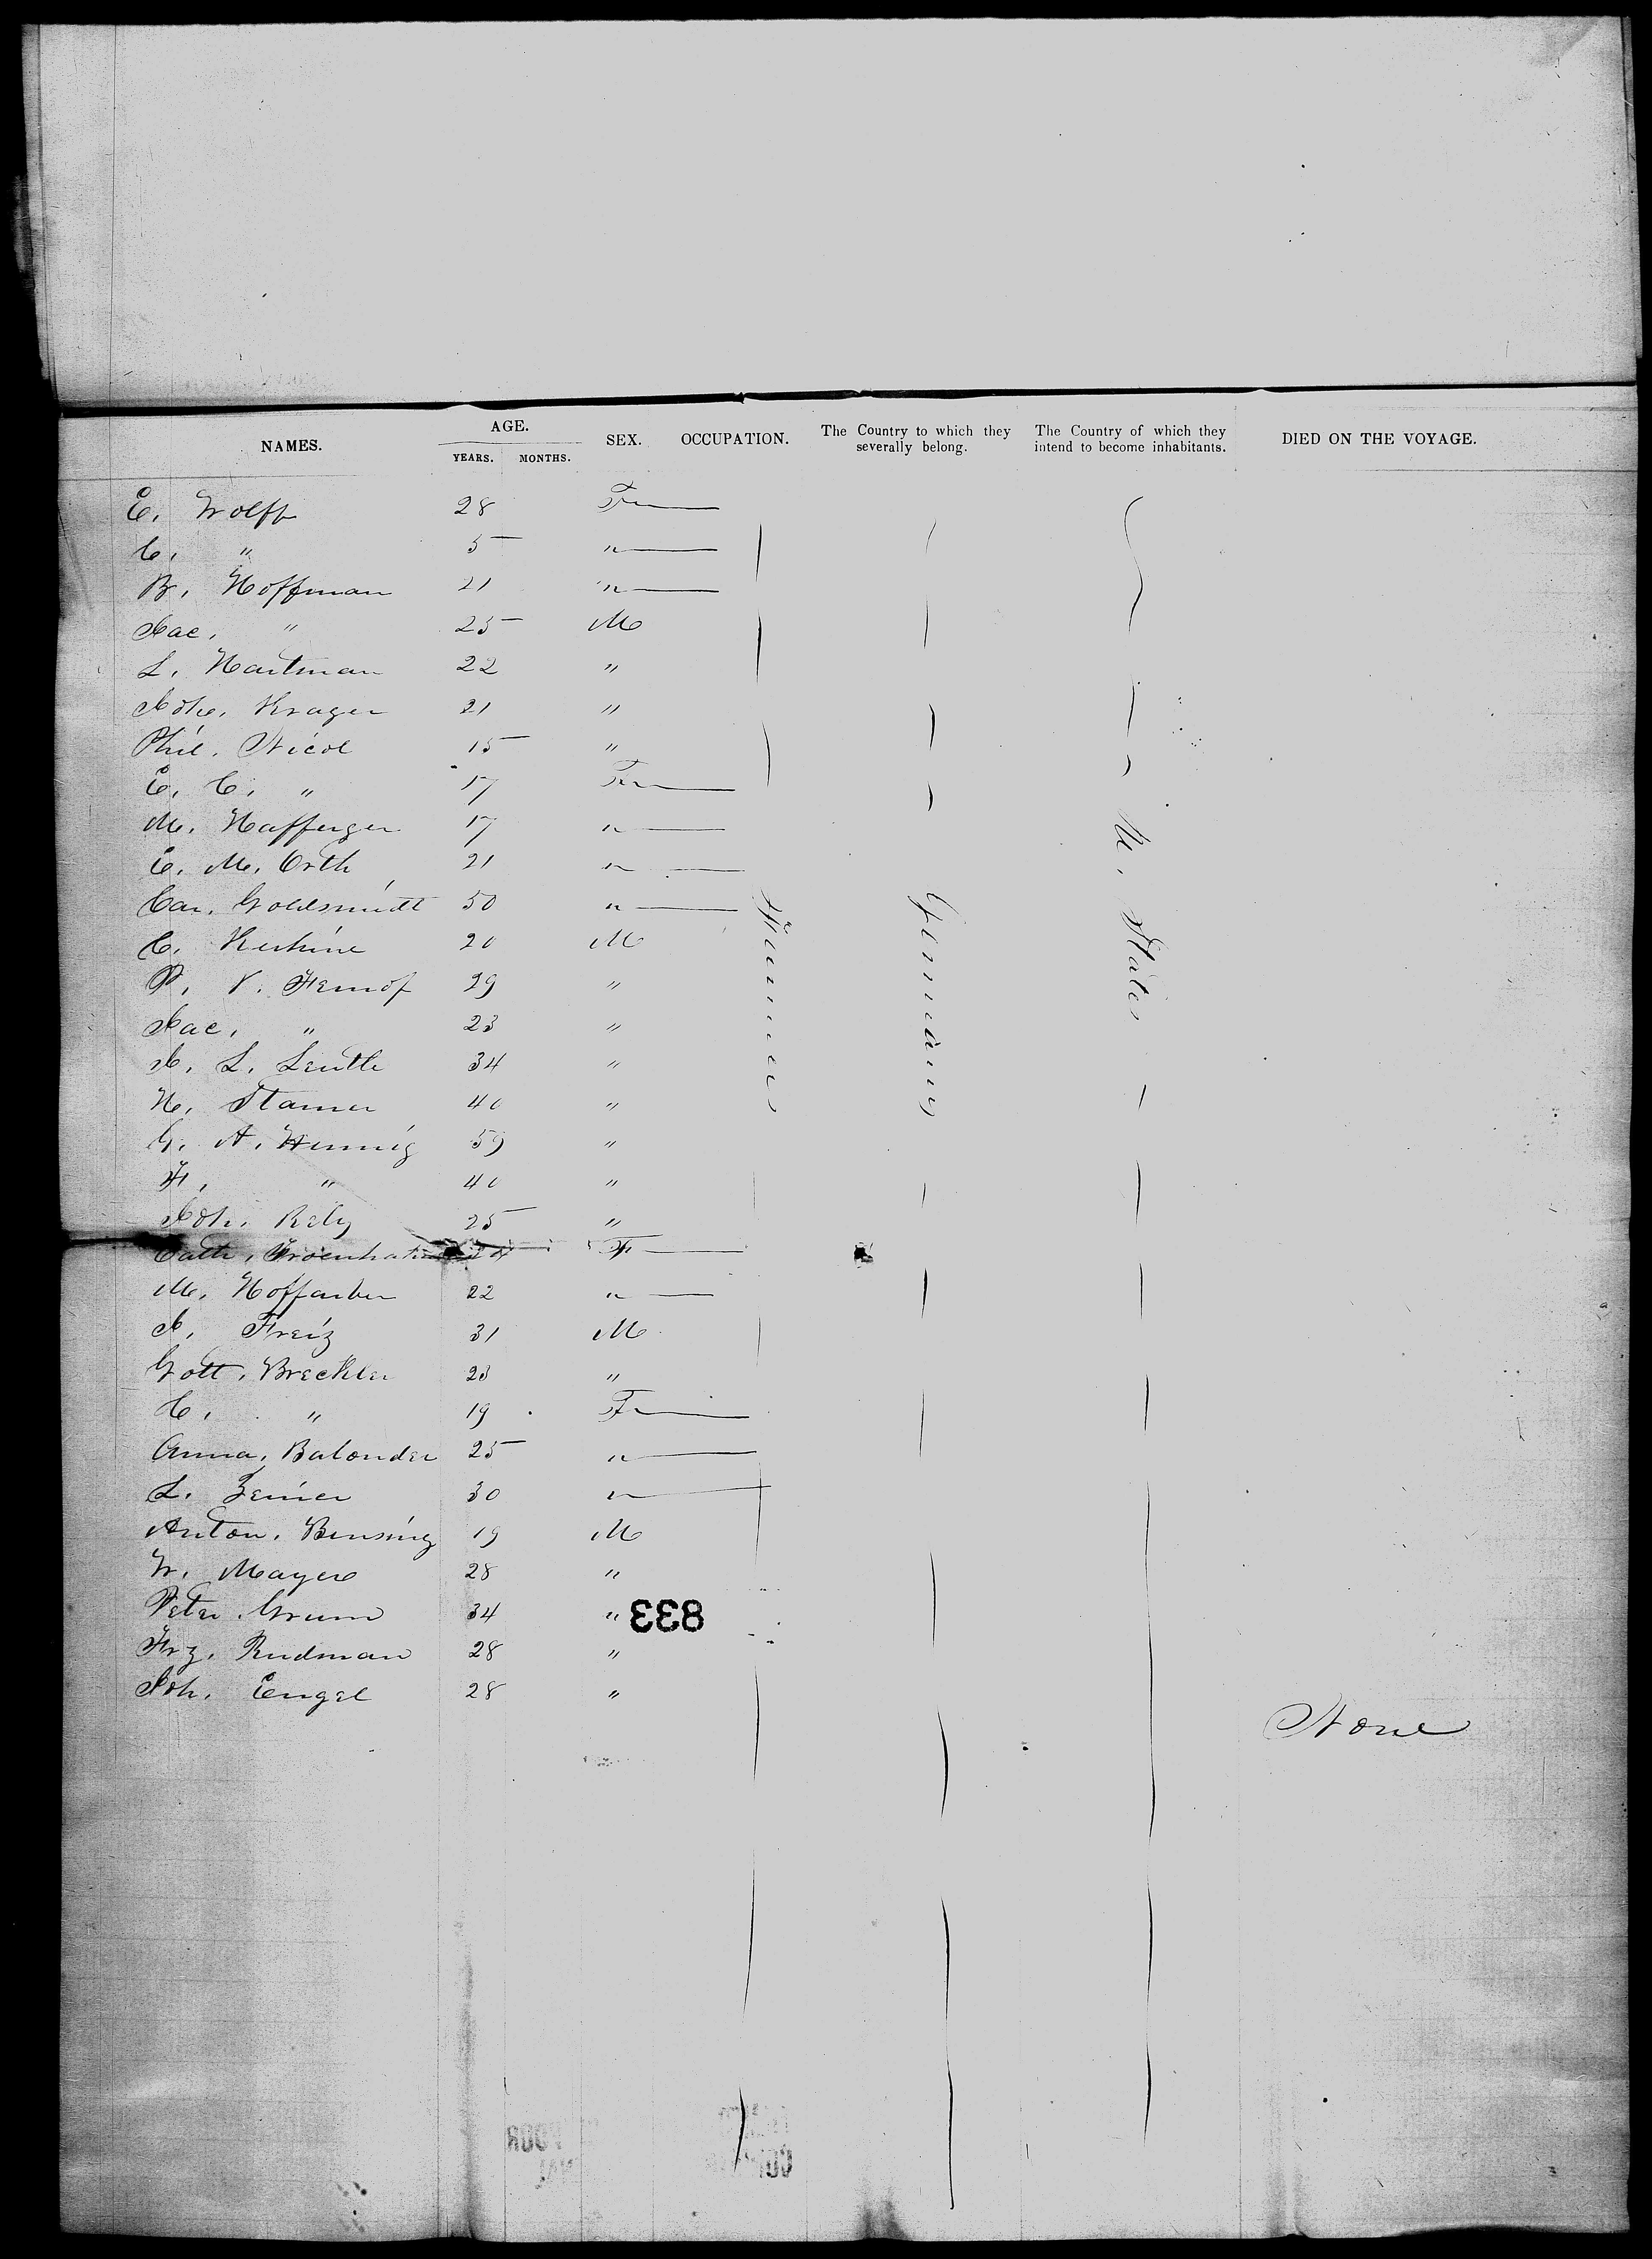 NAMES. AGE. SEX. OCCUPATION. The Country to which they severally belong. The Country of which they intend to become inhabitants. DIED ON THE VOYAGE.
YEARS. MONTHS.
E. Wolff 28 Fm
C. " 5 "
B. Hoffman 21 "
Jac. " 25 M
L. Hartman 22 "
Joh. Kruger 21 "
Phil. Nicol 15 "
E. C. " 17 Fm
M. Hafferger 17 "
E. M. Orth 21 "
Car. Goldsmidt 50 "
C. 20 M
P. V. 29 "
Jac. " 23 "
J. L. 34 "
H. Stamer 40 "
G. A. Hennig 59 "
F. " 40 "
Joh. Rely 25 "
Cath. F
M. Hoffarber 22 "
J. Freiz 31 M
Gott. Breckler 23 "
C. " 19 F
Anna. Balonder 25 "
L. Zeiner 30 "
Anton. Bensing 19 M
W. Mayer 28 "
Peter Grum 34 "
833
Frz. Rudman 28 "
Joh. Engel 28 "
Farmer
Germany
U. States
None